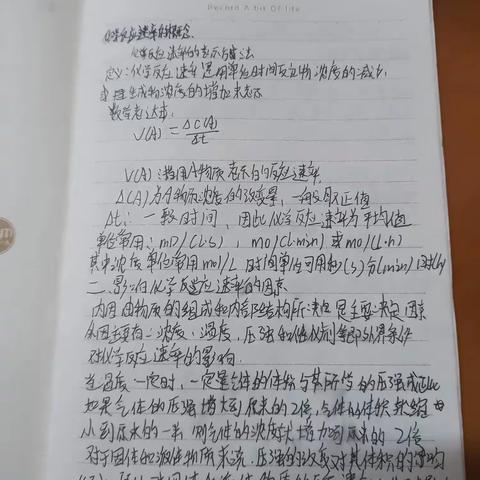 Record A bit Of Life
化学反应速率的概念
化学反应速率的表示方法
定义:化学反应速率是用单位时间反应物浓度的减少
或 生成物浓度的增加来表示
数学表达式:
V(A) = ΔC(A)/Δt
V(A):指用A物质表示的反应速率
Δ(A)为A物质浓度的改变量,一般取正值
Δt:一段时间,因此化学反应速率为平均值
单位常用:mol/(L·s),mol/(L·min)或mol/(L·h)
其中浓度单位常用mol/L 时间单位可用秒(s)分(min)时(h)
二、影响化学反应速率的因素
内因由物质的组成和内部结构所决定是主要决定因素
外因主要有:浓度、温度、压强和催化剂等即外界条件
对化学反应速率的影响.
当温度一定时,一定量气体的体积与其所受的压强成正比
如果气体的压强增大到原来的2倍,气体的体积就缩
小到原来的一半,则气体的浓度增加到原来的2倍
对于固体和液体物质来说,压强的改变对其体积的影响